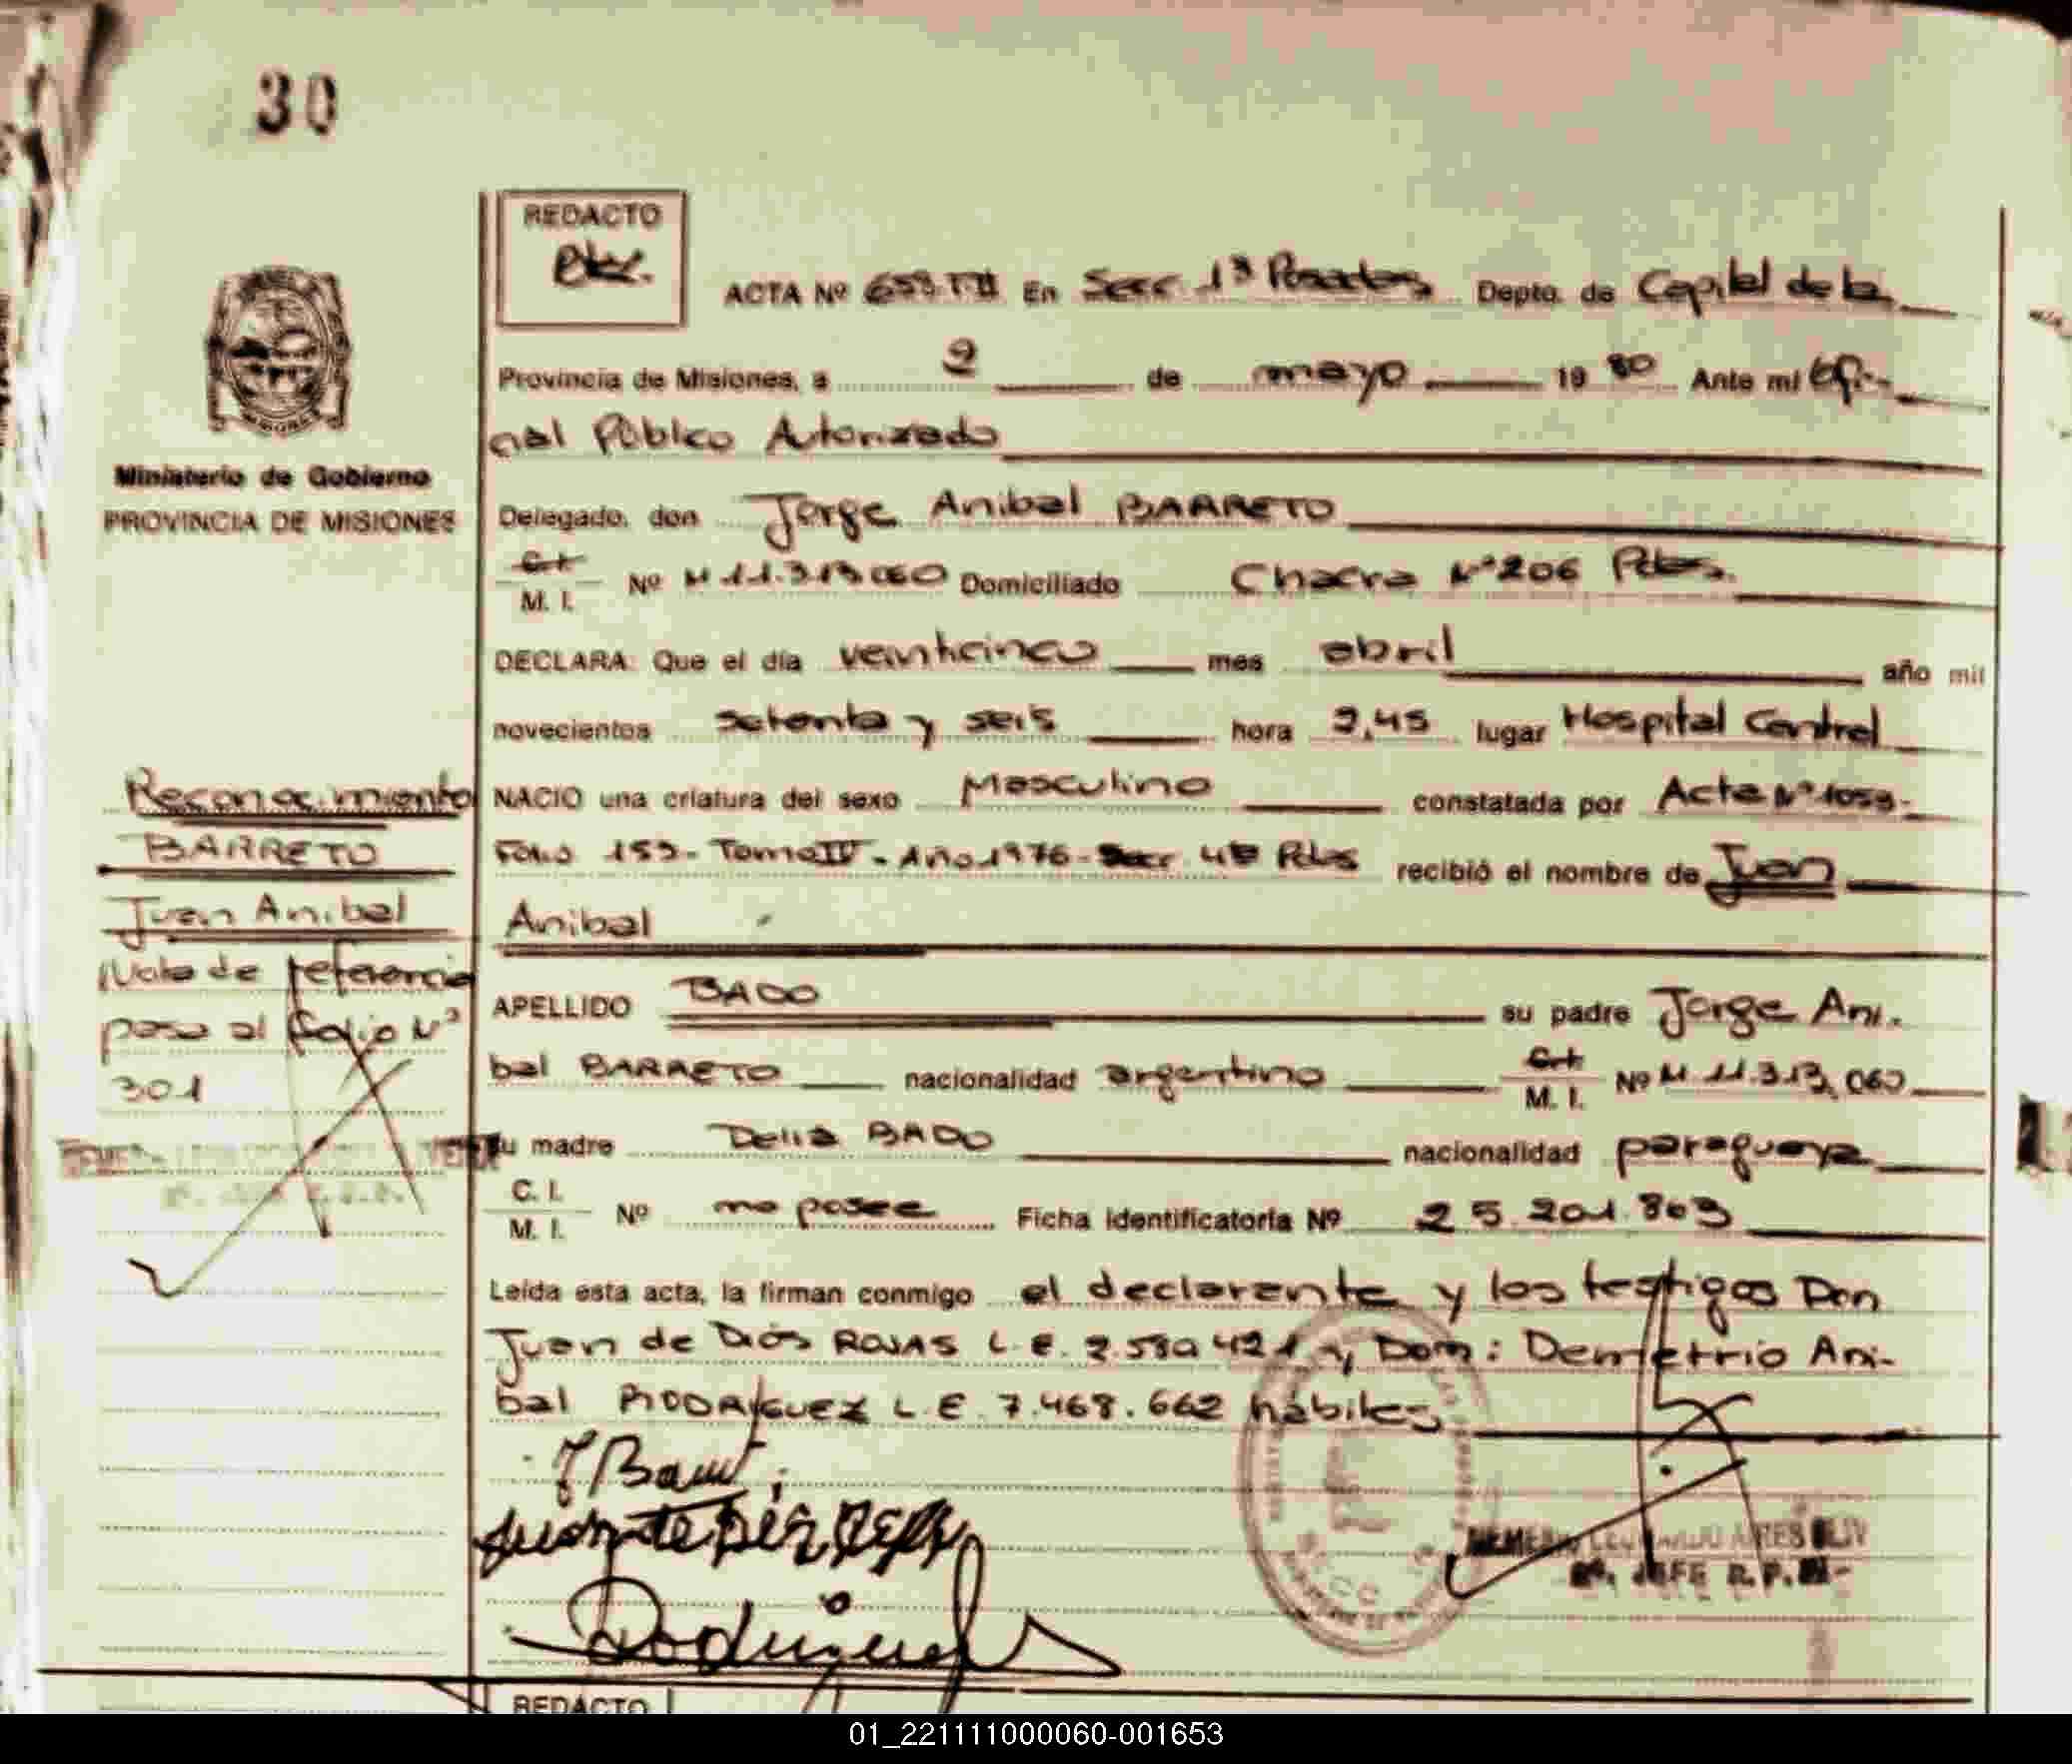 30
REDACTO
ACTA Nº 659.T.II En Secc. 1ª Posadas Depto. de Capital de la
Provincia de Misiones, a 2 de mayo 19 80 Ante mi Ofi-
cial Público Autorizado
Ministerio de Gobierno
PROVINCIA DE MISIONES
Delegado, don Jorge Anibal BARRETO
C.I.
M. I. Nº M 11.313.060 Domiciliado Chacra Nº 206 Pdas.
DECLARA: Que el día veinticinco mes abril año mil
novecientos setenta y seis hora 9,45 lugar Hospital Central
NACIO una criatura del sexo Masculino constatada por Acta Nº 1059-
Folio 159- Tomo IV - Año 1976 - Secc 4ª Pdas recibió el nombre de Juan
Anibal
APELLIDO BADO su padre Jorge Ani-
bal BARRETO nacionalidad argentino C.I.
M. I. Nº M 11.313.060
su madre Delia BADO nacionalidad paraguaya
C. I.
M. I. Nº no posee Ficha Identificatoria Nº 25.201.863
Leída esta acta, la firman conmigo el declarante y los testigos Don
Juan de Dios ROJAS L.E. y Dom: Demetrio Ani-
bal RODRIGUEZ L.E. 7.468.662 hábiles
Reconocimiento
BARRETO
Juan Anibal
Nota de referencia
pasa al folio Nº
301
J Barret
Rodriguez
JEFE R.P.
REDACTO
01_221111000060-001653